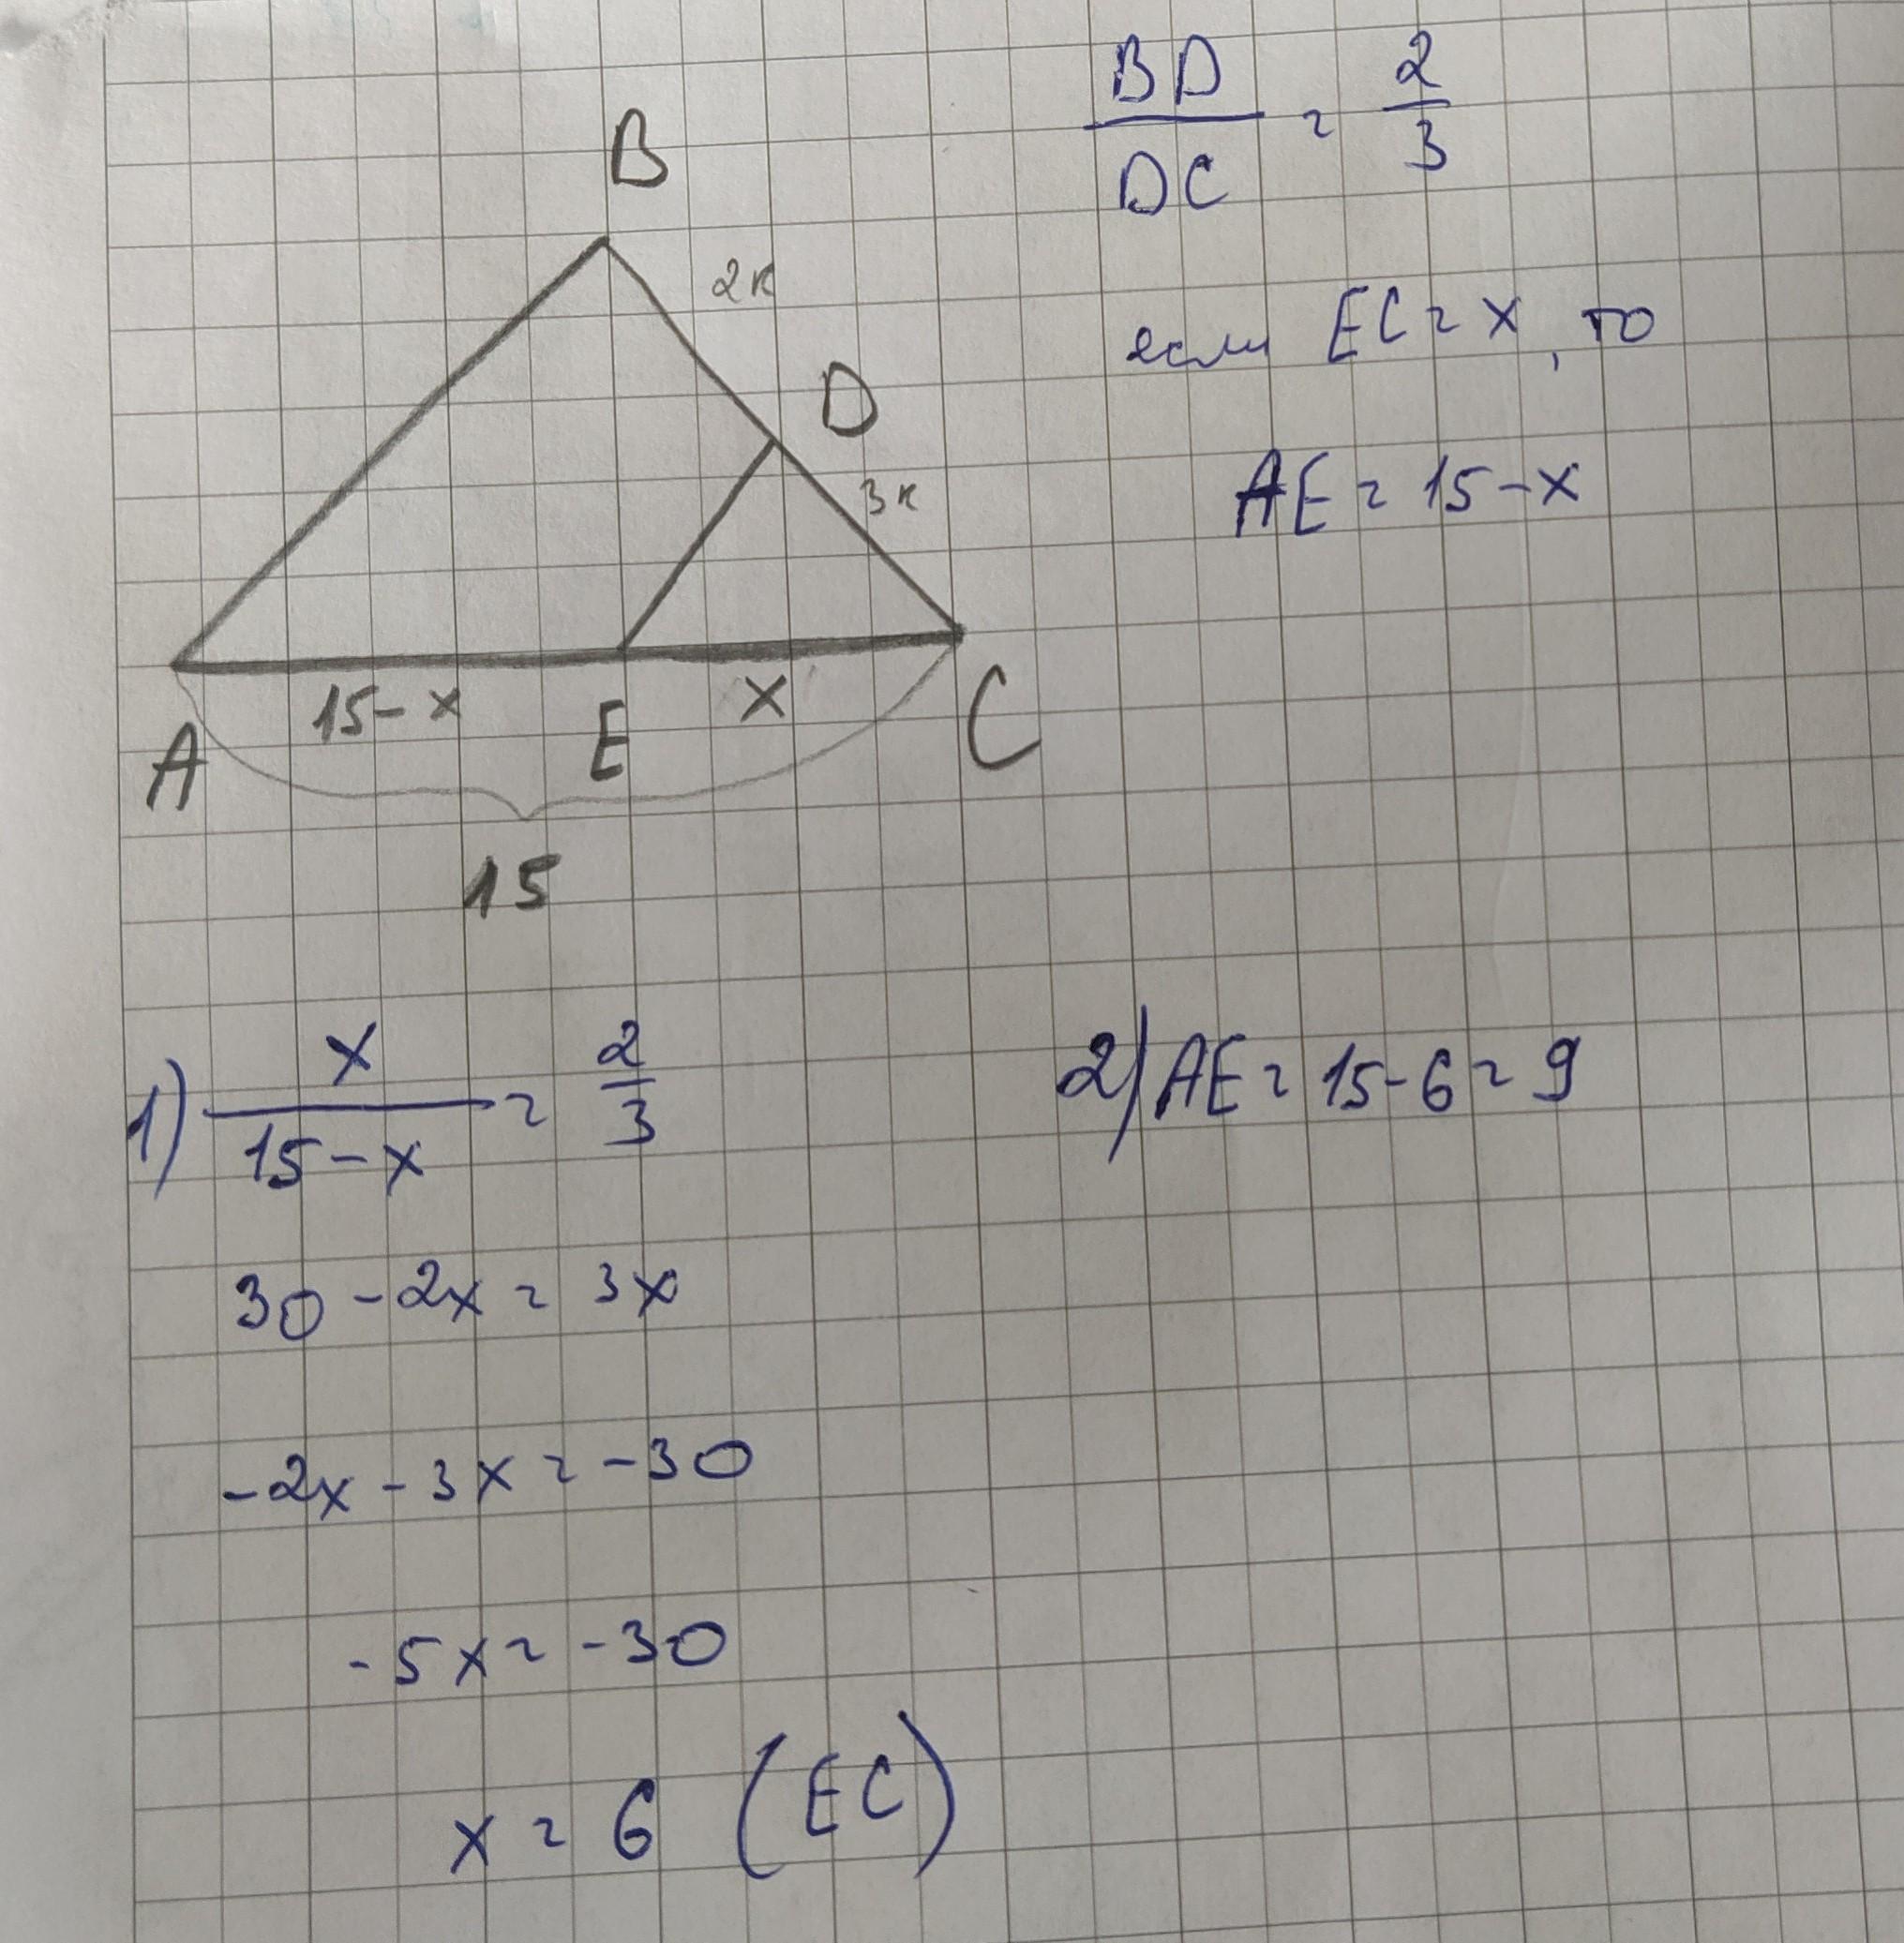 BD/DC = 2/3
если EC = x, то
AE = 15 - x
B
2к
D
3к
15 - x
x
A
E
C
15
1) x/(15 - x) = 2/3
30 - 2x = 3x
-2x - 3x = -30
-5x = -30
x = 6 (EC)
2) AE = 15 - 6 = 9